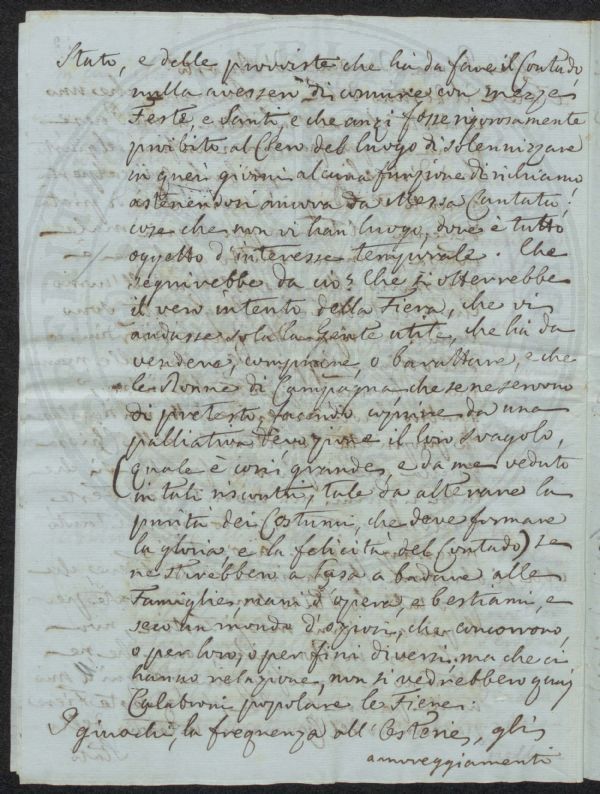 Stato, e delle proviste che ha da fare il Contado,
nulla avessero di comune con mezze
Feste, e Santi, e che anzi fosse rigorosamente
proibito al Clero del luogo di solennizzare
in quei giorni alcuna funzione di richiamo
astenendosi ancora da Messa Cantata;
cose che non vi han luogo, dove è tutto
oggetto d'interesse temporale. Che
seguirebbe da ciò? Che si otterrebbe
il vero intento della Fiera, che vi
andasse sola la Gente utile, che ha da
vendere, comprare, o barattare, e che
le Donne di Campagna che se ne servono
di pretesto, facendo coprire da una
palliativa Devozione il loro svagolo,
(quale è così grande, e da me veduto
in tali riscontri, tale da alterare la
purità dei Costumi, che deve formare
la gloria, e la felicità del Contado) se
ne starebbero a Casa a badare alle
Famiglie, mani d'opera, e bestiami, e
seco un mondo d'oziosi, che concorrono,
o per loro, o per fini diversi, ma che ci
hanno relazione, non si vedrebbero quai
Calabroni popolare le Fiere.
I giuochi, la frequenza all'Osterie, gli
amoreggiamenti